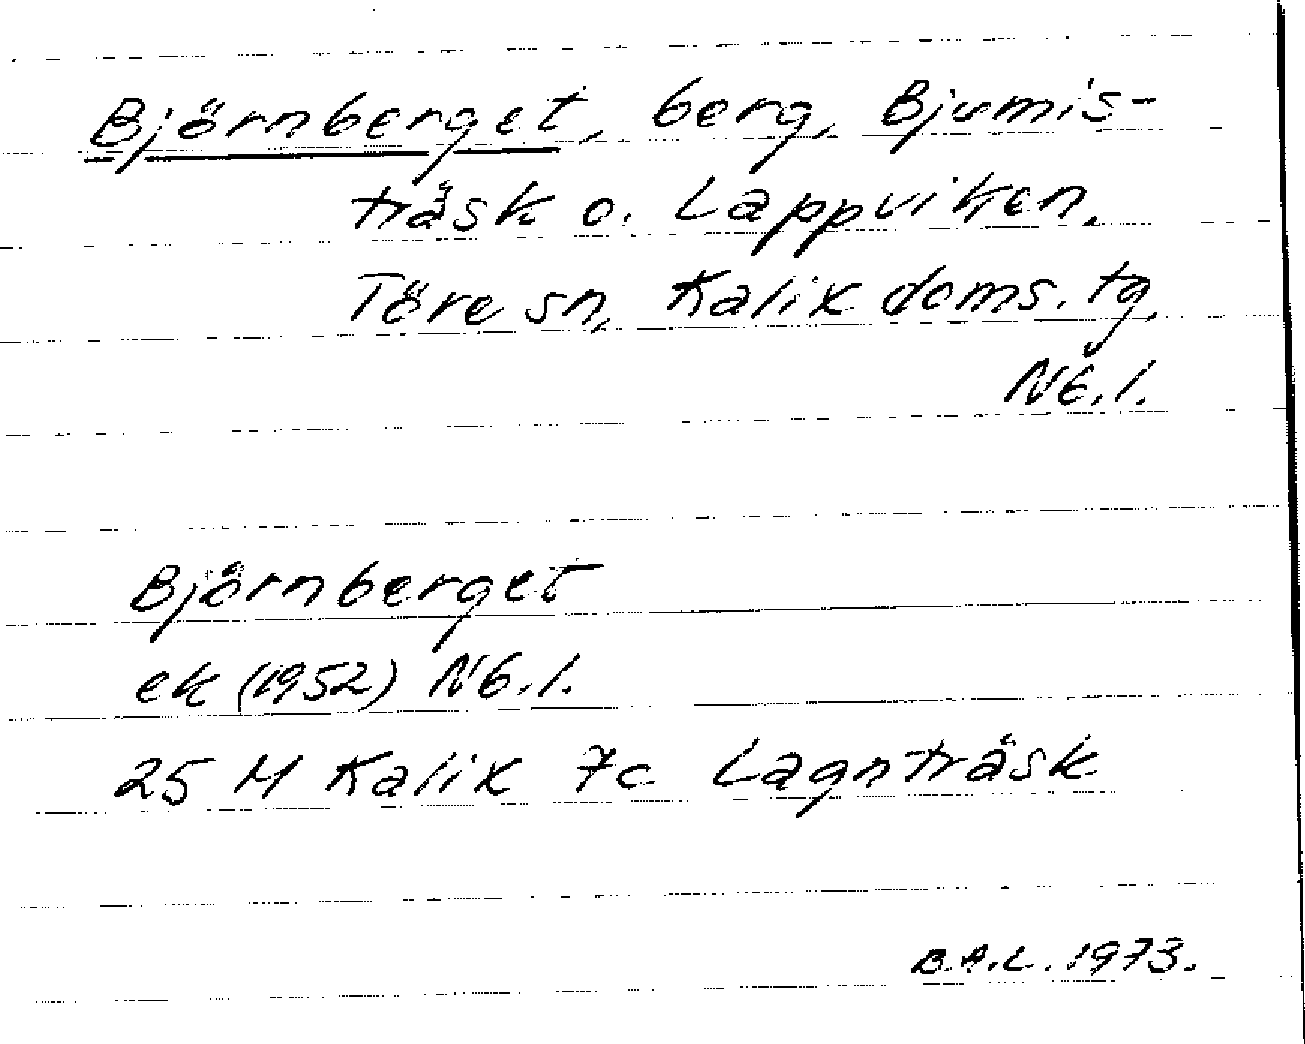 Björnberget, berg, Bjumis-
träsk o. Lappviken.
Töre sn, Kalix doms. tg,
Nb. l.
Björnberget
ek (1952) Nb. l.
25 M Kalix 7c Lagnträsk
B.A.L. 1973.